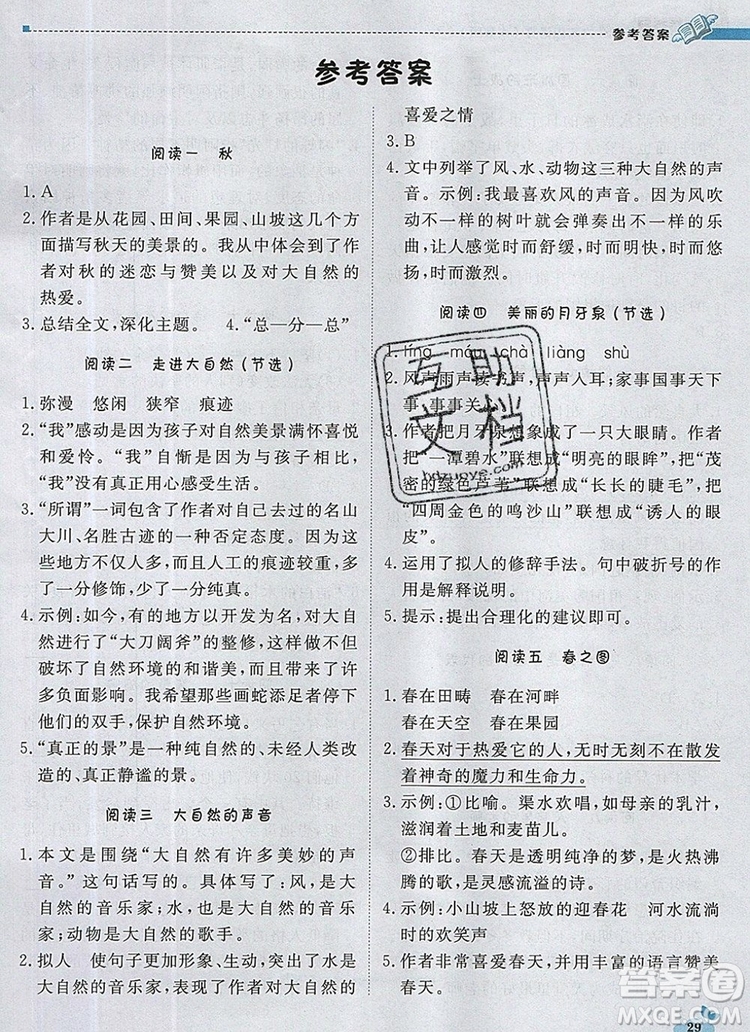 参考答案
参考答案
阅读一 秋
1. A
2. 作者是从花园、田间、果园、山坡这几个方
面描写秋天的美景的。我从中体会到了作
者对秋的迷恋与赞美以及对大自然的
热爱。
3. 总结全文,深化主题。 4.“总—分—总”
阅读二 走进大自然(节选)
1. 弥漫 悠闲 狭窄 痕迹
2.“我”感动是因为孩子对自然美景满怀喜悦
和爱怜。“我”自惭是因为与孩子相比,
“我”没有真正用心感受自然。
3.“所谓”一词包含了作者对现在的名山
大川、名胜古迹的一种否定态度。现在这些
地方不仅人多,而且人工的痕迹较重,多了
一分修饰,少了一分纯真。
4. 示例:如今,有的地方以开发为名,对大自
然景观进行“大刀阔斧”的整修,这样不但
破坏了自然环境的和谐美,而且带来了许
多负面影响。我希望这些画蛇添足者停下
他们的双手,保护自然环境。
5.“真正的景”是一种纯自然的、未经人类改
造的,真正静谧的景。
阅读三 大自然的声音
1. 本文是围绕“大自然有许多美妙的声
音。”这句话写的。具体写了:风,是大
自然的音乐家;水,也是大自然的音乐
家;动物是大自然的歌手。
2. 拟人 使句子更加形象、生动,突出了水是
大自然的音乐家,表现了作者对大自然的
喜爱之情
3. B
4. 文中列举了风、水、动物这三种大自然的
声音。示例:我最喜欢风的声音。因为风吹
动不一样的树叶就会弹奏出不一样的乐
曲,让人感觉时而舒缓,时而明快,时而悠
扬,时而激烈。
阅读四 美丽的月牙泉(节选)
1. líng chà liàng shù
2. 风声雨声读书声,声声入耳;家事国事天下
事,事事关
3. 作者把月牙泉想象成了一只大眼睛。作者
把“一潭碧水”联想成“明亮的眼眸”,把“茂
密的绿色芦苇”联想成“长长的睫毛”,把
“四周金色的鸣沙山”联想成“诱人的眼
皮”。
4. 运用了拟人的修辞手法。句中破折号的作
用是解释说明。
5. 提示:提出合理化的建议即可。
阅读五 春之图
1. 春在田畴 春在河畔
春在天空 春在果园
2. 春天对于热爱它的人,无时无刻不在散发
着神奇的魔力和生命力。
3. 示例:①比喻。渠水欢唱,如母亲的乳汁,
滋润着土地和麦苗儿。
②排比。春天是透明纯净的梦,是火热沸
腾的歌,是灵感流溢的诗。
4. 示例:小山坡上怒放的迎春花 河水流淌
时的欢笑声
5. 作者非常喜爱春天,并用丰富的语言赞美
春天。
29
互助
文档
hdzuoye.com
答案圈
MXQE.COM